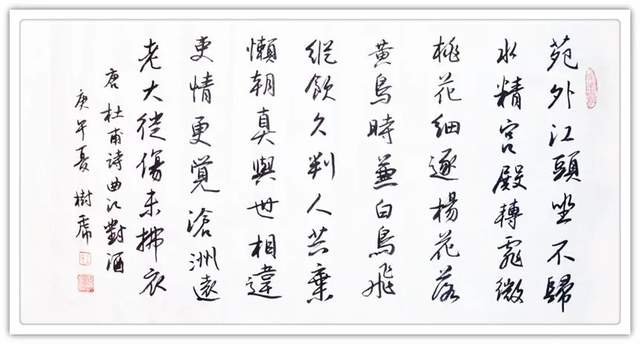 苑外江頭坐不歸
水精宮殿轉霏微
桃花細逐楊花落
黄鳥時兼白鳥飛
縱飲久判人共棄
懶朝真與世相違
吏情更覺滄洲遠
老大徒傷未拂衣
唐杜甫詩曲江對酒
庚午夏樹